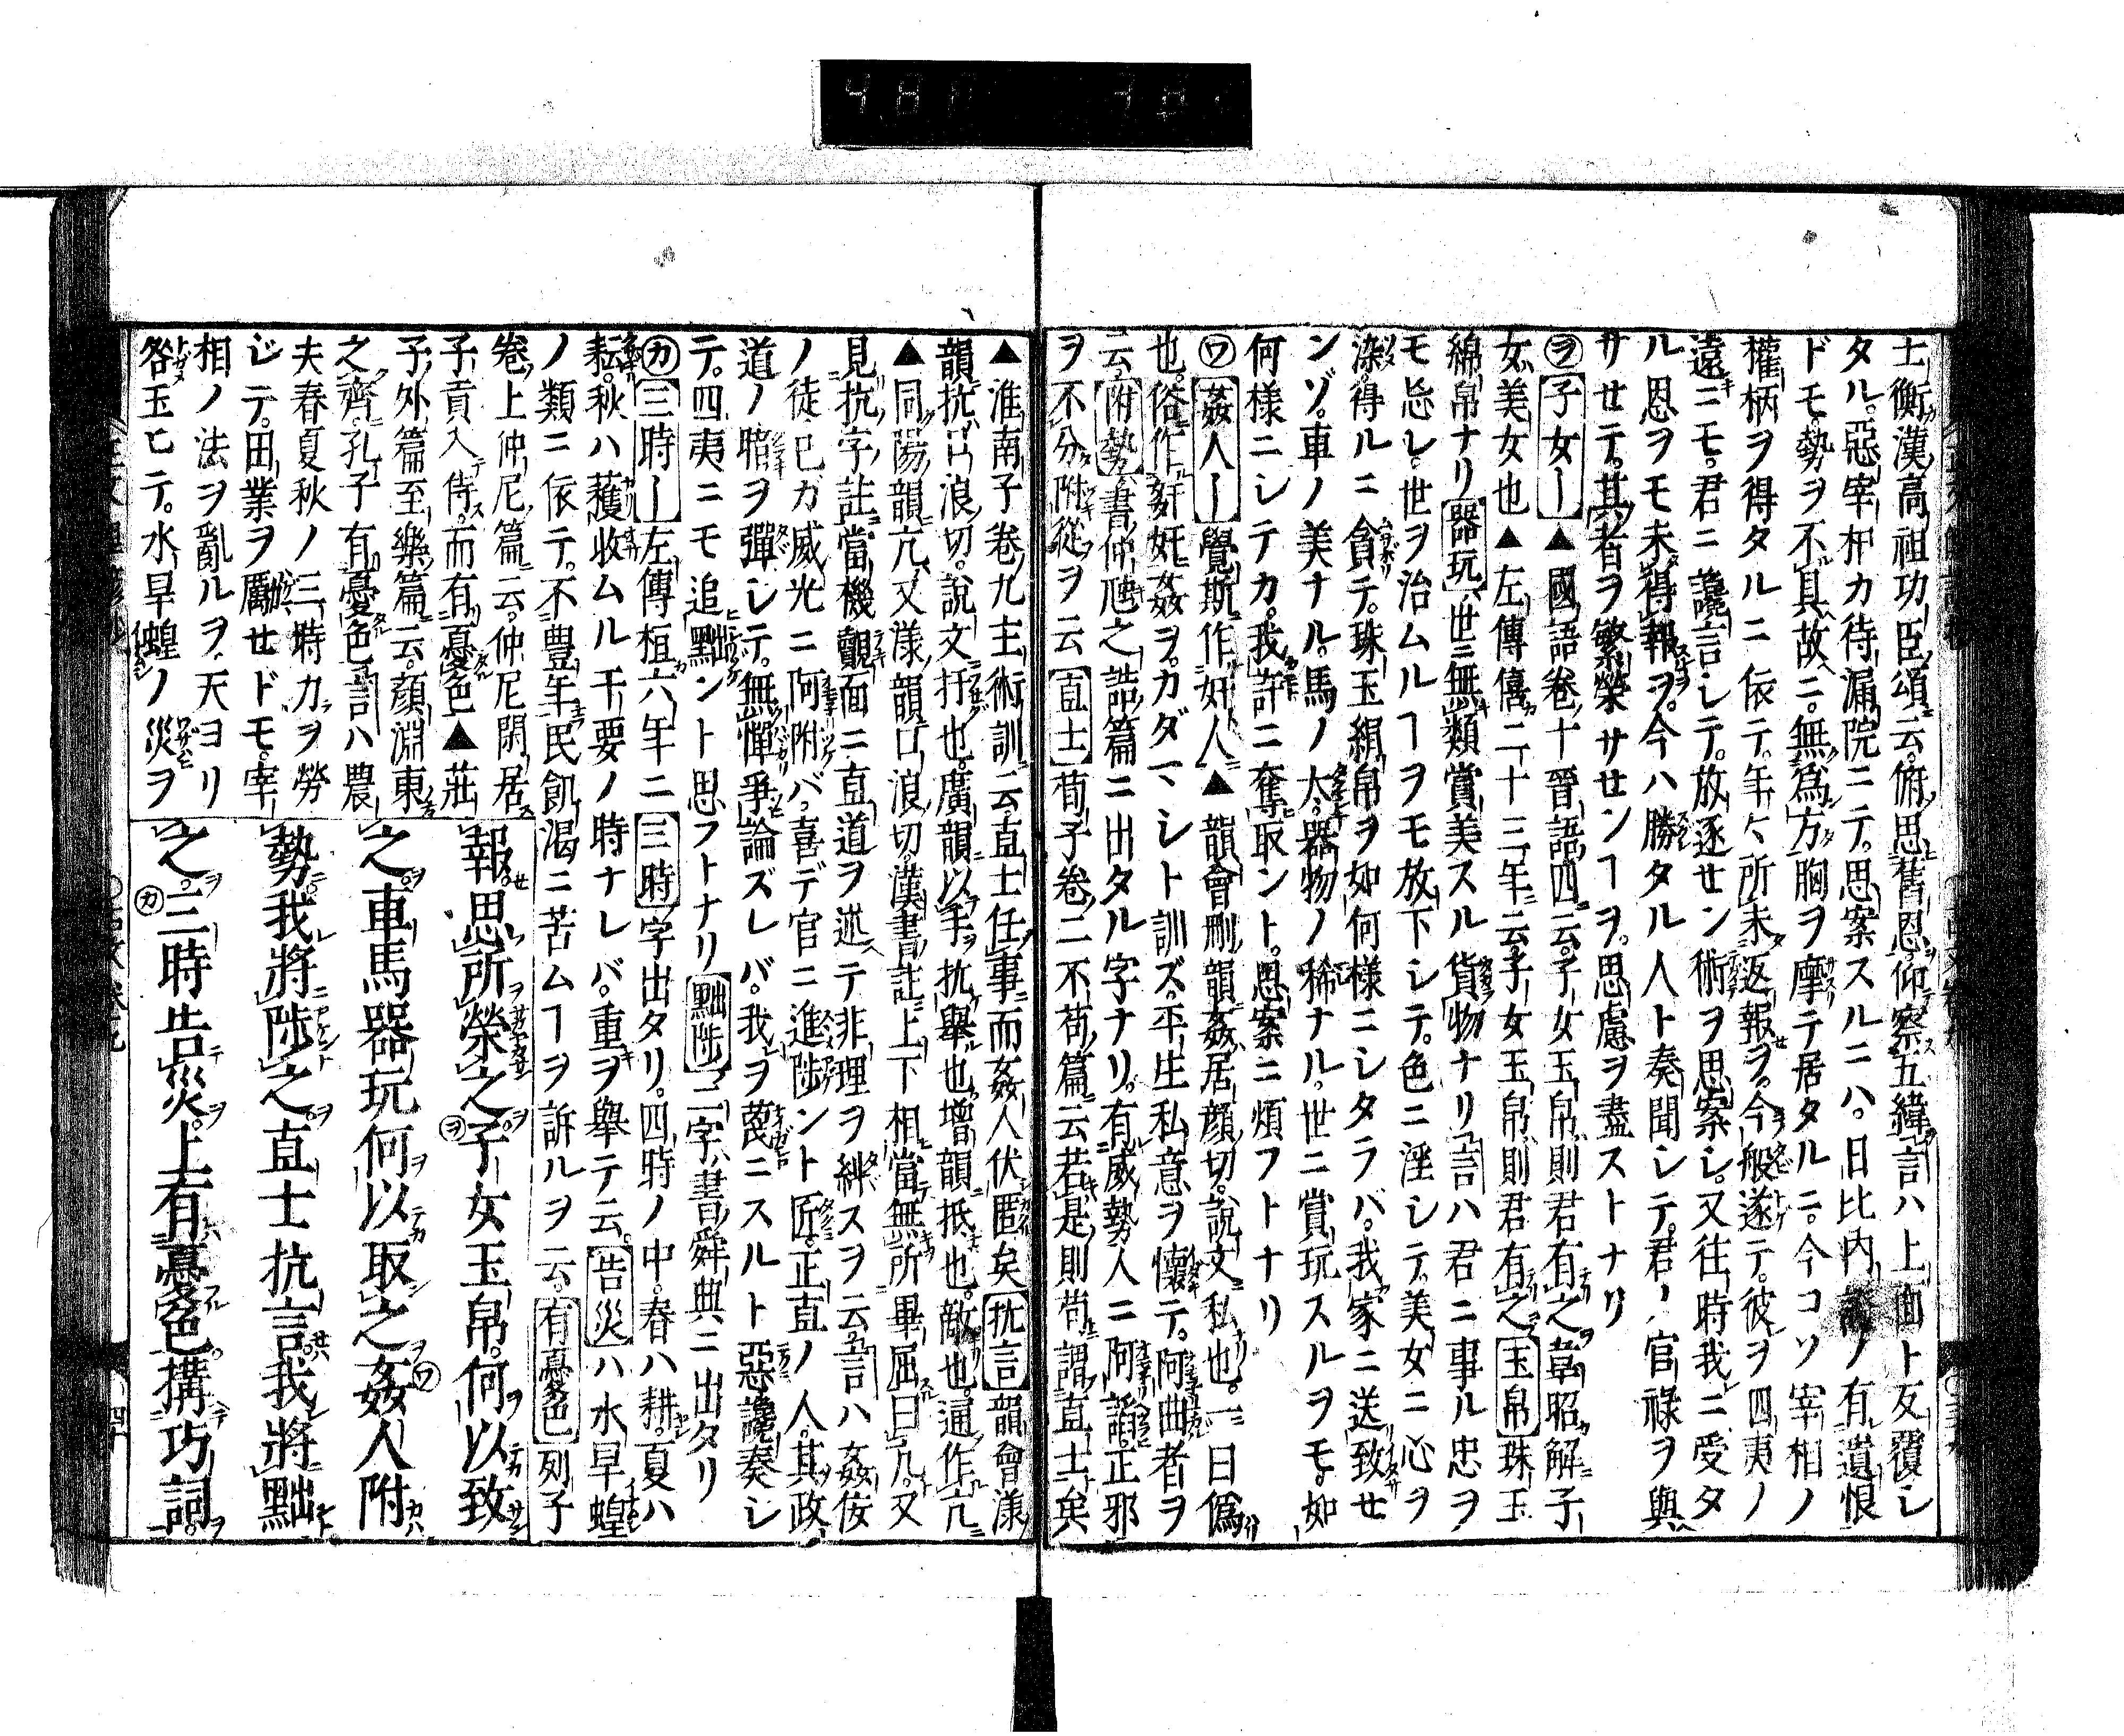 士衡漢高祖功臣頌云。俯思舊恩。仰察五緯言ハ上ノ面ト反覆シ
タル。惡宰相カ待漏院ニテ。思案スルニハ。日比内ノ有遺恨
ドモ。勢ヲ不具故ニ。無爲方胸ヲ摩テ居タルニ。今コソ宰相ノ
權柄ヲ得タルニ依テ。年ゝ所未返報ヲ。今般遂テ。彼ヲ四夷ノ
遠ニモ。君ニ讒言シテ。放逐セン術ヲ思案シ。又往時我ニ受タ
ル恩ヲモ未得報ヲ。今ハ勝タル人ト奏聞シテ。君ノ官祿ヲ與
サセテ。其者ヲ繁榮サセンヿヲ。思慮ヲ盡ストナリ
ヲ子女ー▲國語卷十晉語四云。子女玉帛則君有之韋昭解子
女美女也▲左傳僖二十三年云。子女玉帛則君有之玉帛珠玉
綿帛ナリ器玩世ニ無類賞美スル貨物ナリ言ハ君ニ事ル忠ヲ
モ忘レ。世ヲ治ムルヿヲモ放下シテ。色ニ淫シテ。美女ニ心ヲ
染。得ルニ貪テ。珠玉絹帛ヲ如何樣ニシタラバ。我家ニ送致セ
ンゾ。車ノ美ナル。馬ノ大。器物ノ稀ナル。世ニ賞玩スルヲモ。如
何樣ニシテカ。我許ニ奪取ント。思案ニ煩フトナリ
ワ姦人ー覺斯作奸人▲韻會刪韻姦居顔切。說文私也。一曰僞
也。俗作姧奸姦ヲ。カダマシト訓ズ。平生私意ヲ懷テ。阿曲者ヲ
云。附勢書仲虺之誥篇ニ出タル字ナリ。有威勢人ニ阿諂。正邪
ヲ不分附從ヲ云直士荀子卷二不苟篇云若是則苟謂直士矣
▲淮南子卷九主術訓云直士任事而姦人伏匿矣抗言韻會漾
韻抗口浪切。說文扞也。廣韻以手抗擧也增韻抵也。敵也。通作亢
▲同陽韻亢又漾韻口浪切。漢書註上下相當無所畢屈曰亢。又
見抗字註當機覿面ニ直道ヲ述テ非理ヲ糾スヲ云言ハ姦佞
ノ徒己ガ威光ニ阿附バ。喜デ官ニ進陟ント匠。正直ノ人。其政
道ノ暗ヲ彈シテ。無憚爭論ズレバ。我ヲ蔑ニスルト惡讒奏シ
テ。四夷ニモ追黜ント思フトナリ黜陟二字書舜典ニ出タリ
カ三時ー左傳桓六年ニ三時字出タリ。四時ノ中。春ハ耕。夏ハ
耘。秋ハ穫收ムル干要ノ時ナレバ。重ヲ擧テ云。告災ハ水旱蝗
ノ類ニ依テ。不豐年民飢渴ニ苦ムヿヲ訴ルヲ云。有憂色列子
卷上仲尼篇云。仲尼閑居
子貢入侍。而有憂色▲莊
子外篇至樂篇云。顔淵東
之齊。孔子有憂色言ハ農
夫春夏秋ノ三時力ヲ勞
ジテ。田業ヲ勵セドモ。宰
相ノ法ヲ亂ルヲ。天ヨリ
咎玉ヒテ。水旱蝗ノ災ヲ
報。思所榮之ヲ子女玉帛。何以致
之。車馬器玩何以取之ワ姦人附
勢我將陟之直士抗言我將黜
之。カ三時告災。上有憂色。搆巧詞。